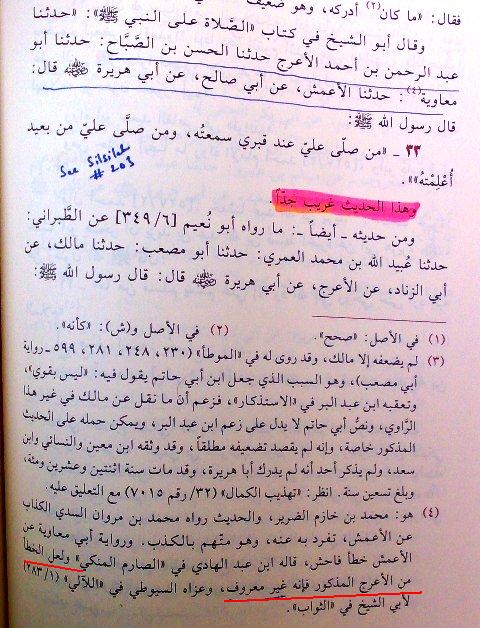 فقال: «ما كان(٢) أدركه، وهو ضعيف
وقال أبو الشيخ في كتاب «الصَّلاة على النبي ﷺ»: «حدثنا
عبد الرحمن بن أحمد الأعرج حدثنا الحسن بن الصَّبَّاح: حدثنا أبو
معاوية(٤): حدثنا الأعمش، عن أبي صالح، عن أبي هريرة ﷺ قال:
قال رسول الله ﷺ:
٣٣ ـ «من صلّى عليّ عند قبري سمعتُه، ومن صلَّى عليّ من بعيد
أُعْلِمْتُهُ»».
See Silsilah
# 203
وهذا الحديث غريب جدّاً.
ومن حديثه ـ أيضاً ـ: ما رواه أبو نُعيم [٣٤٩/٦] عن الطَّبراني:
حدثنا عُبيد الله بن محمد العمري: حدثنا أبو مصعب: حدثنا مالك، عن
أبي الزناد، عن الأعرج، عن أبي هريرة ﷺ قال: قال رسول الله ﷺ:
(١) في الأصل: «صحح». (٢) في الأصل و(ش): «كأنه».
(٣) لم يضعفه إلا مالك، وقد روى له في «الموطأ» (٢٣٠، ٢٤٨، ٢٨١، ٥٩٩ ـ رواية
أبي مصعب)، وهو السبب الذي جعل ابن أبي حاتم يقول فيه: «ليس بقوي»،
وتعقبه ابن عبد البر في «الاستذكار»، فزعم أن ما نقل عن مالك في غير هذا
الرَّاوي، ونصُّ أبي حاتم لا يدل على زعم ابن عبد البر، ويمكن حمله على الحديث
المذكور خاصة، وإنه لم يقصد تضعيفه مطلقاً، وقد وثقه ابن معين والنسائي وابن
سعد، ولم يذكر أحد أنه لم يدرك أبا هريرة، وقد مات سنة اثنتين وعشرين ومئة،
وبلغ تسعين سنة. انظر: «تهذيب الكمال» (٣٢/ رقم ٧٠١٥) مع التعليق عليه.
(٤) هو: محمد بن خازم الضرير، والحديث رواه محمد بن مروان السدي الكذاب
عن الأعمش، تفرد به عنه، وهو متّهم بالكذب. ورواية أبي معاوية عن
الأعمش خطأ فاحش، قاله ابن عبد الهادي في «الصارم المنكي» ولعل الخطأ
من الأعرج المذكور فإنه غير معروف، وعزاه السيوطي في «اللآلي» (٢٨٣/١)
لأبي الشيخ في «الثواب».